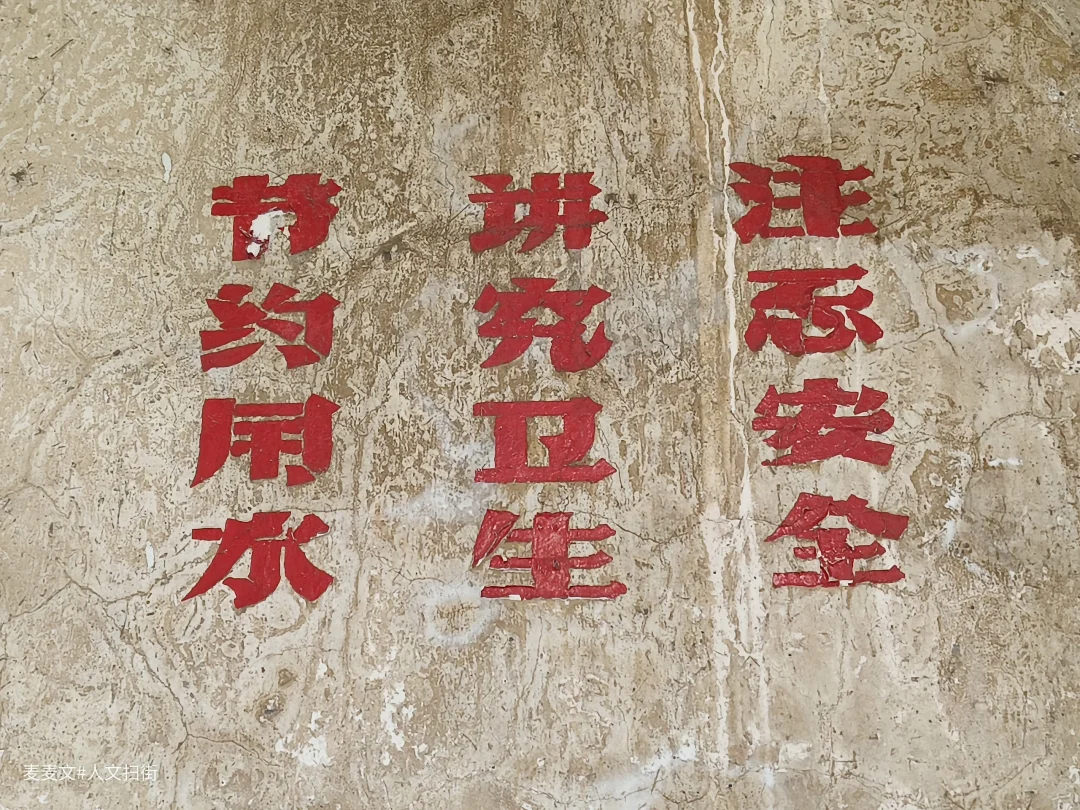 注意安全
讲究卫生
节约用水
麦麦文#人文扫街